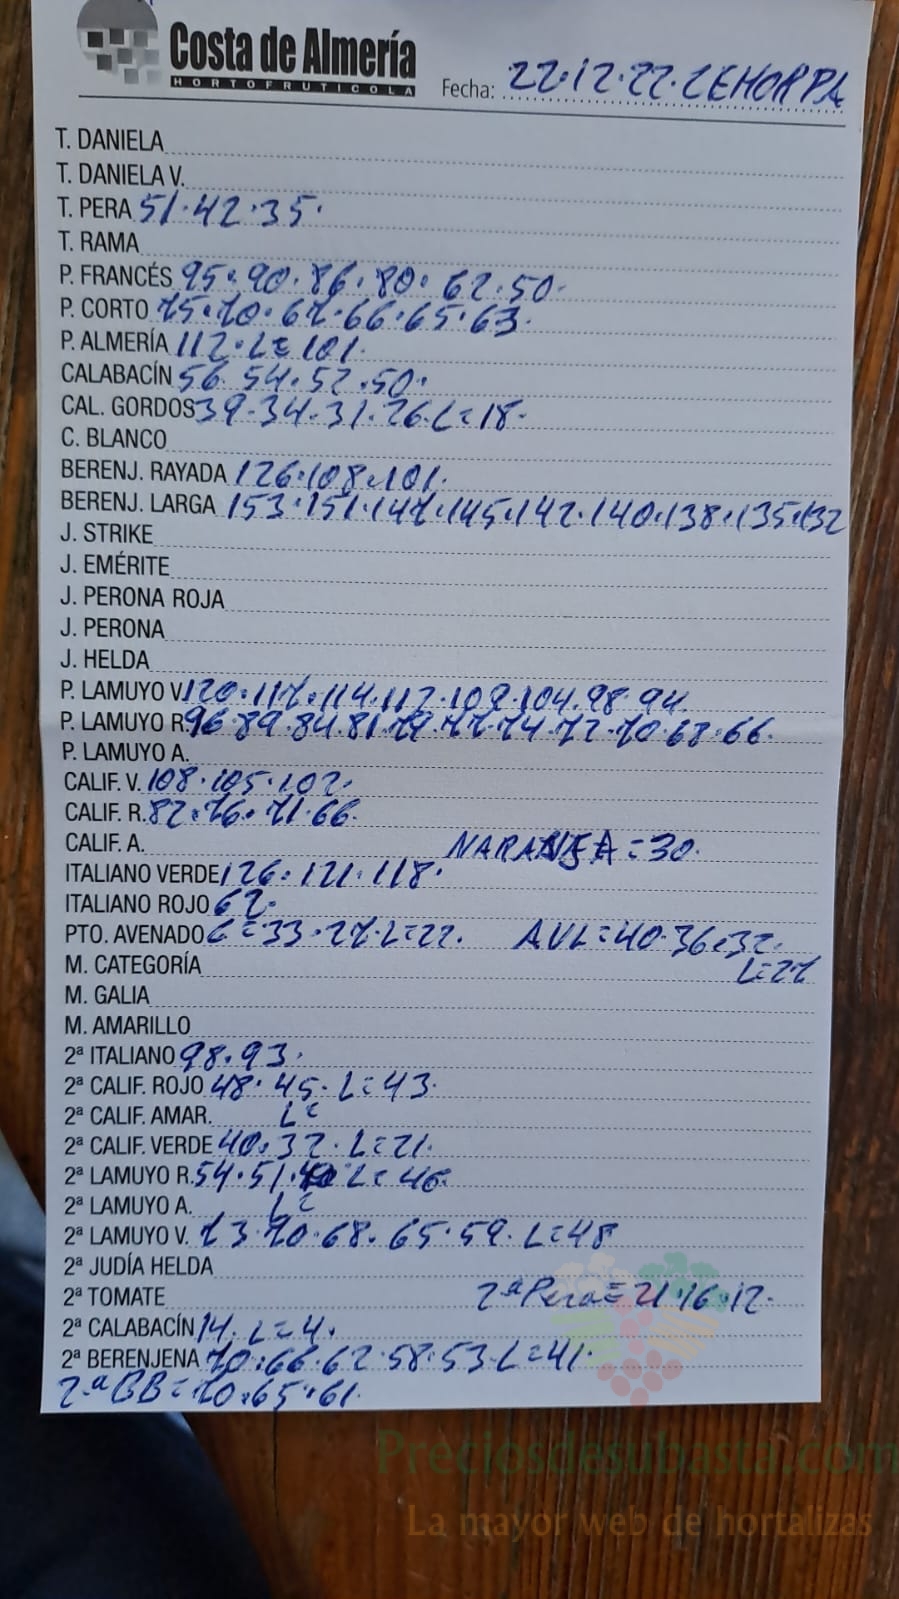 Costa de Almería
HORTOFRUTICOLA
Fecha: 22·12·22· CEHORPA
T. DANIELA
T. DANIELA V.
T. PERA 51·42·35·
T. RAMA
P. FRANCÉS 95·90·86·80·62·50·
P. CORTO 75·70·67·66·65·63·
P. ALMERÍA 112·L=101·
CALABACÍN 56·54·52·50·
CAL. GORDOS 39·34·31·26·L=18·
C. BLANCO
BERENJ. RAYADA 126·108·101·
BERENJ. LARGA 153·151·147·145·142·140·138·135·132
J. STRIKE
J. EMÉRITE
J. PERONA ROJA
J. PERONA
J. HELDA
P. LAMUYO V. 120·117·114·112·109·104·98·94
P. LAMUYO R. 96·89·84·81·79·77·74·72·70·68·66·
P. LAMUYO A.
CALIF. V. 108·105·102·
CALIF. R. 82·76·71·66·
CALIF. A. NARANJA=30·
ITALIANO VERDE 126·121·118·
ITALIANO ROJO 62·
PTO. AVENADO G=33·27·L=22· AVL=40·36·32·
L=27
M. CATEGORÍA
M. GALIA
M. AMARILLO
2ª ITALIANO 98·93·
2ª CALIF. ROJO 48·45·L=43·
2ª CALIF. AMAR. L=
2ª CALIF. VERDE 40·32·L=21·
2ª LAMUYO R. 54·51· L=46·
2ª LAMUYO A. L=
2ª LAMUYO V. 73·70·68·65·59·L=48
2ª JUDÍA HELDA
2ª TOMATE 2ª Pera=21·16·12·
2ª CALABACÍN 14·L=4·
2ª BERENJENA 70·66·62·58·53·L=41·
2ª BB=70·65·61·
Preciosdesubasta.com
La mayor web de hortalizas